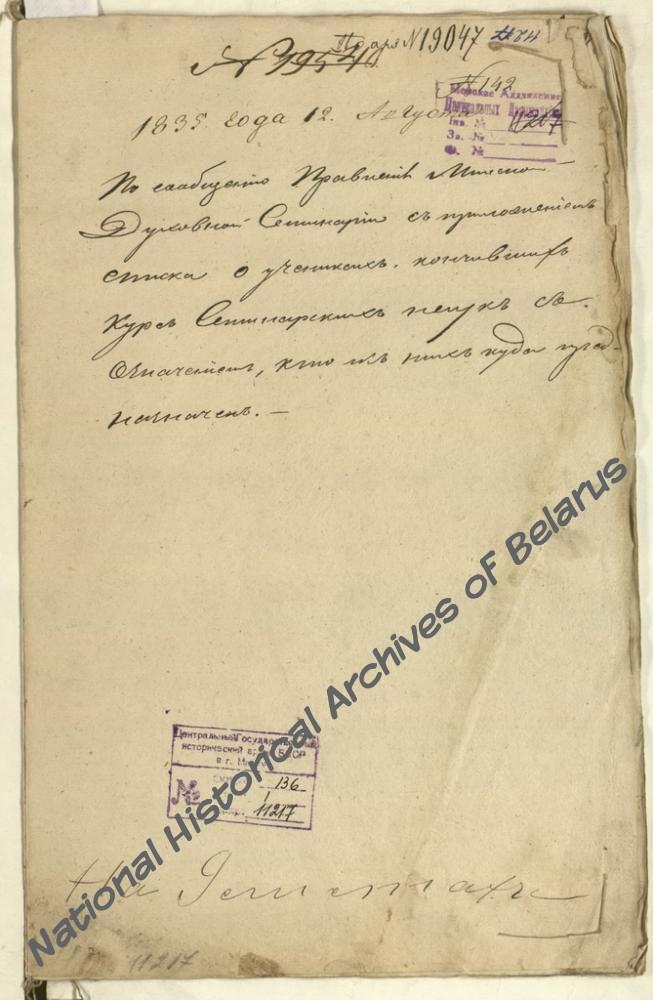 По арх N 19047
N 19540
N 142
Минское Отделение
Центральных Архивов
Инв. № 11217
Зв. №
Ф. №
1835 года 12. Августа
По сообщению Правленія Минской
Духовной Семинаріи съ приложеніемъ
списка о ученикахъ, кончившихъ
Курсъ Семинарскихъ наукъ съ
Означеніемъ, кто изъ нихъ куда пред-
назначенъ. —
Центральный Государственный
исторический архив БССР
в г. Минске
136
1
№
11217
На листахъ
11217
National Historical Archives of Belarus